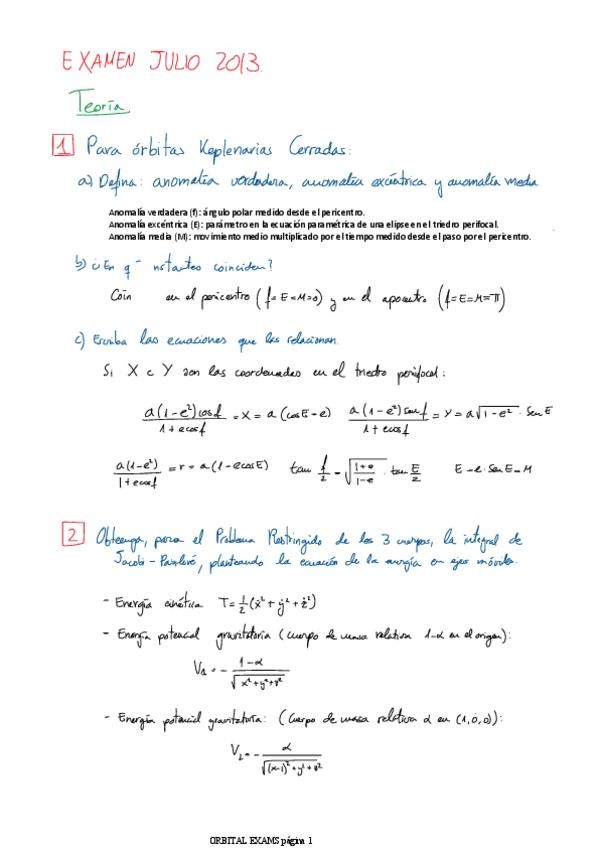 EXAMEN JULIO 2013.
Teoría
1 Para órbitas Keplenarias Cerradas:
a) Defina: anomalía verdadera, anomalía excéntrica y anomalía media
Anomalía verdadera (f): ángulo polar medido desde el pericentro.
Anomalía excéntrica (E): parámetro en la ecuación paramétrica de una elipse en el triedro perifocal.
Anomalía media (M): movimiento medio multiplicado por el tiempo medido desde el paso por el pericentro.
b) ¿En q- instantes coinciden?
Coin en el pericentro (f=E=M=0) y en el apocentro (f=E=M=π)
c) Escriba las ecuaciones que las relacionan.
Si X e Y son las coordenadas en el triedro perifocal:
a(1-e²)cosf / 1+ecosf = X = a(cosE-e) a(1-e²)senf / 1+ecosf = Y = a√1-e² · SenE
a(1-e²) / 1+ecosf = r = a(1-ecosE) tan f/2 = √1+e/1-e · tan E/2 E-e·SenE=M
2 Obtenga, para el Problema Restringido de los 3 cuerpos, la integral de
Jacobi-Painlevé, planteando la ecuación de la energía en ejes móviles.
- Energía cinética T=½(ẋ²+ẏ²+ż²)
- Energía potencial gravitatoria (cuerpo de masa relativa 1-α en el origen):
V₁ = - 1-α / √x²+y²+z²
- Energía potencial gravitatoria: (cuerpo de masa relativa α en (1,0,0)):
V₂ = - α / √(x-1)²+y²+z²
ORBITAL EXAMS página 1